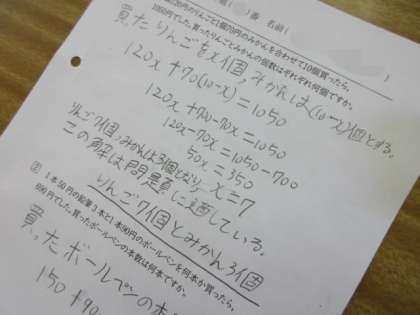 番 名前(
20円のりんごと1個70円のみかんを合わせて10個買ったら、
1050円でした。買ったりんごとみかんの個数はそれぞれ何個ですか。
買たりんごをx個,みかんは(10-x)個とする。
120x+70(10-x)=1050
120x+700-70x=1050
120x-70x=1050-700
50x=350
x=7
りんご7個,みかんは3個となり,
この解は問題に適している。
りんご7個とみかん3個
② 1本50円の鉛筆3本と1本90円のボールペンを何本か買ったら、
690円でした。買ったボールペンの本数は何本ですか。
買ったボールペンの本
150+90